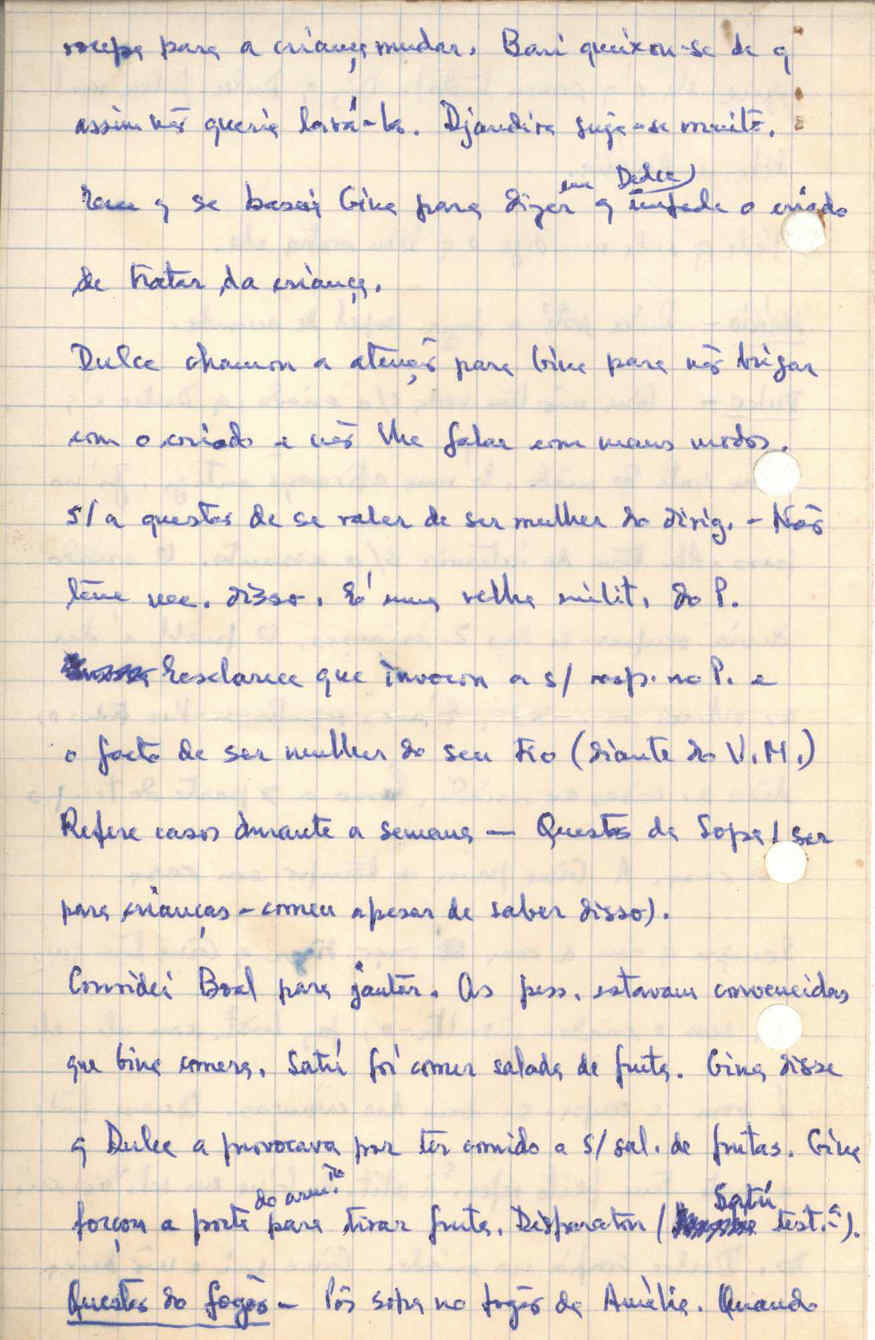 roupa para a criança mudar. Bari queixou-se de q
assim não queria lavá-la. Djandira suja-se muito.
q se Gina para dizer q em Dulce impede o criado
de tratar da criança.
Dulce chamou a atenção para Gina para não brigar
com o criado e não lhe falar com maus modos.
S/ a questão de se valer de ser mulher do dirig. - Não
tem nec. disso. É uma velha milit. do P.
Esclarece que invocou a s/ resp. no P. e
o facto de ser mulher do seu tio (diante do V.M.)
Refere casos durante a semana — Questão da Sopa (ser
para crianças - comeu apesar de saber disso).
Convidei Boal para jantar. As pess. estavam convencidas
que Gina comera. Satú foi comer salada de fruta. Gina disse
q Dulce a provocava por ter comido a s/ sal. de frutas. Gina
forçou a porta do arm.rio para tirar fruta. Disparatou (Satú test.a).
Questão do fogão - Pôs sopa no fogão da Amélia. Quando